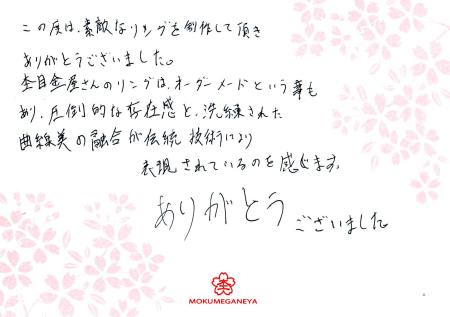 この度は、素敵なリングを創作して頂き
ありがとうございました。
杢目金屋さんのリングは、オーダーメードという事も
あり、圧倒的な存在感と、洗練された
曲線美の融合が伝統技術により
表現されているのを感じます。
ありがとう
ございました
MOKUMEGANEYA